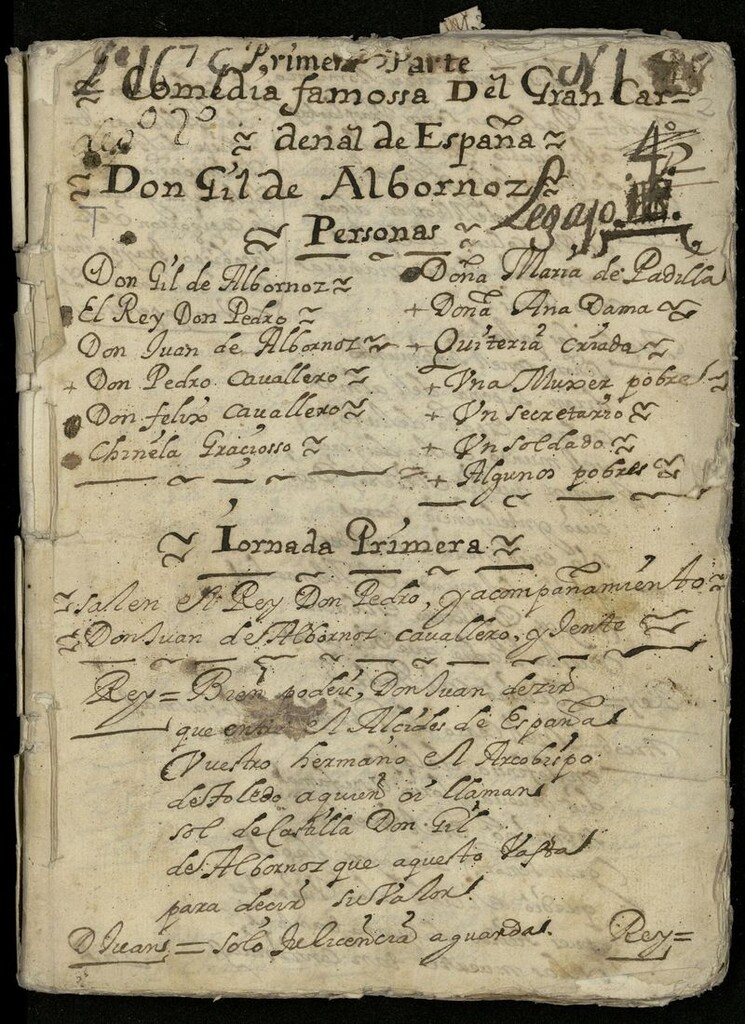 Primera Parte
Nº 1
Comedia famossa Del Gran Car=
denal de España
Don Gil de Albornoz
4º
Legajo
Personas
Don Gil de Albornoz
El Rey Don Pedro
Don Juan de Albornoz
+ Don Pedro cavallero
Don felix cavallero
Chinela Graciosso
Doña Maria de Padilla
+ Doña Ana Dama
+ Quiteria criada
+ Vna Muxer pobre
+ Vn secretario
+ Vn soldado
+ Algunos pobres
Iornada Primera
salen el Rey Don Pedro, y acompañamiento
Don Juan de Albornoz cavallero, y Jente
Rey= Bien podeis, Don Juan dezir
que entre el Alcides de España
Vuestro hermano el Arcobispo
de Toledo a quien oi llaman
sol de Castilla Don Gil
de Albornoz que aquesto Vasta
para decir su Valor
D Juan= solo su licencia aguarda.
Rey=